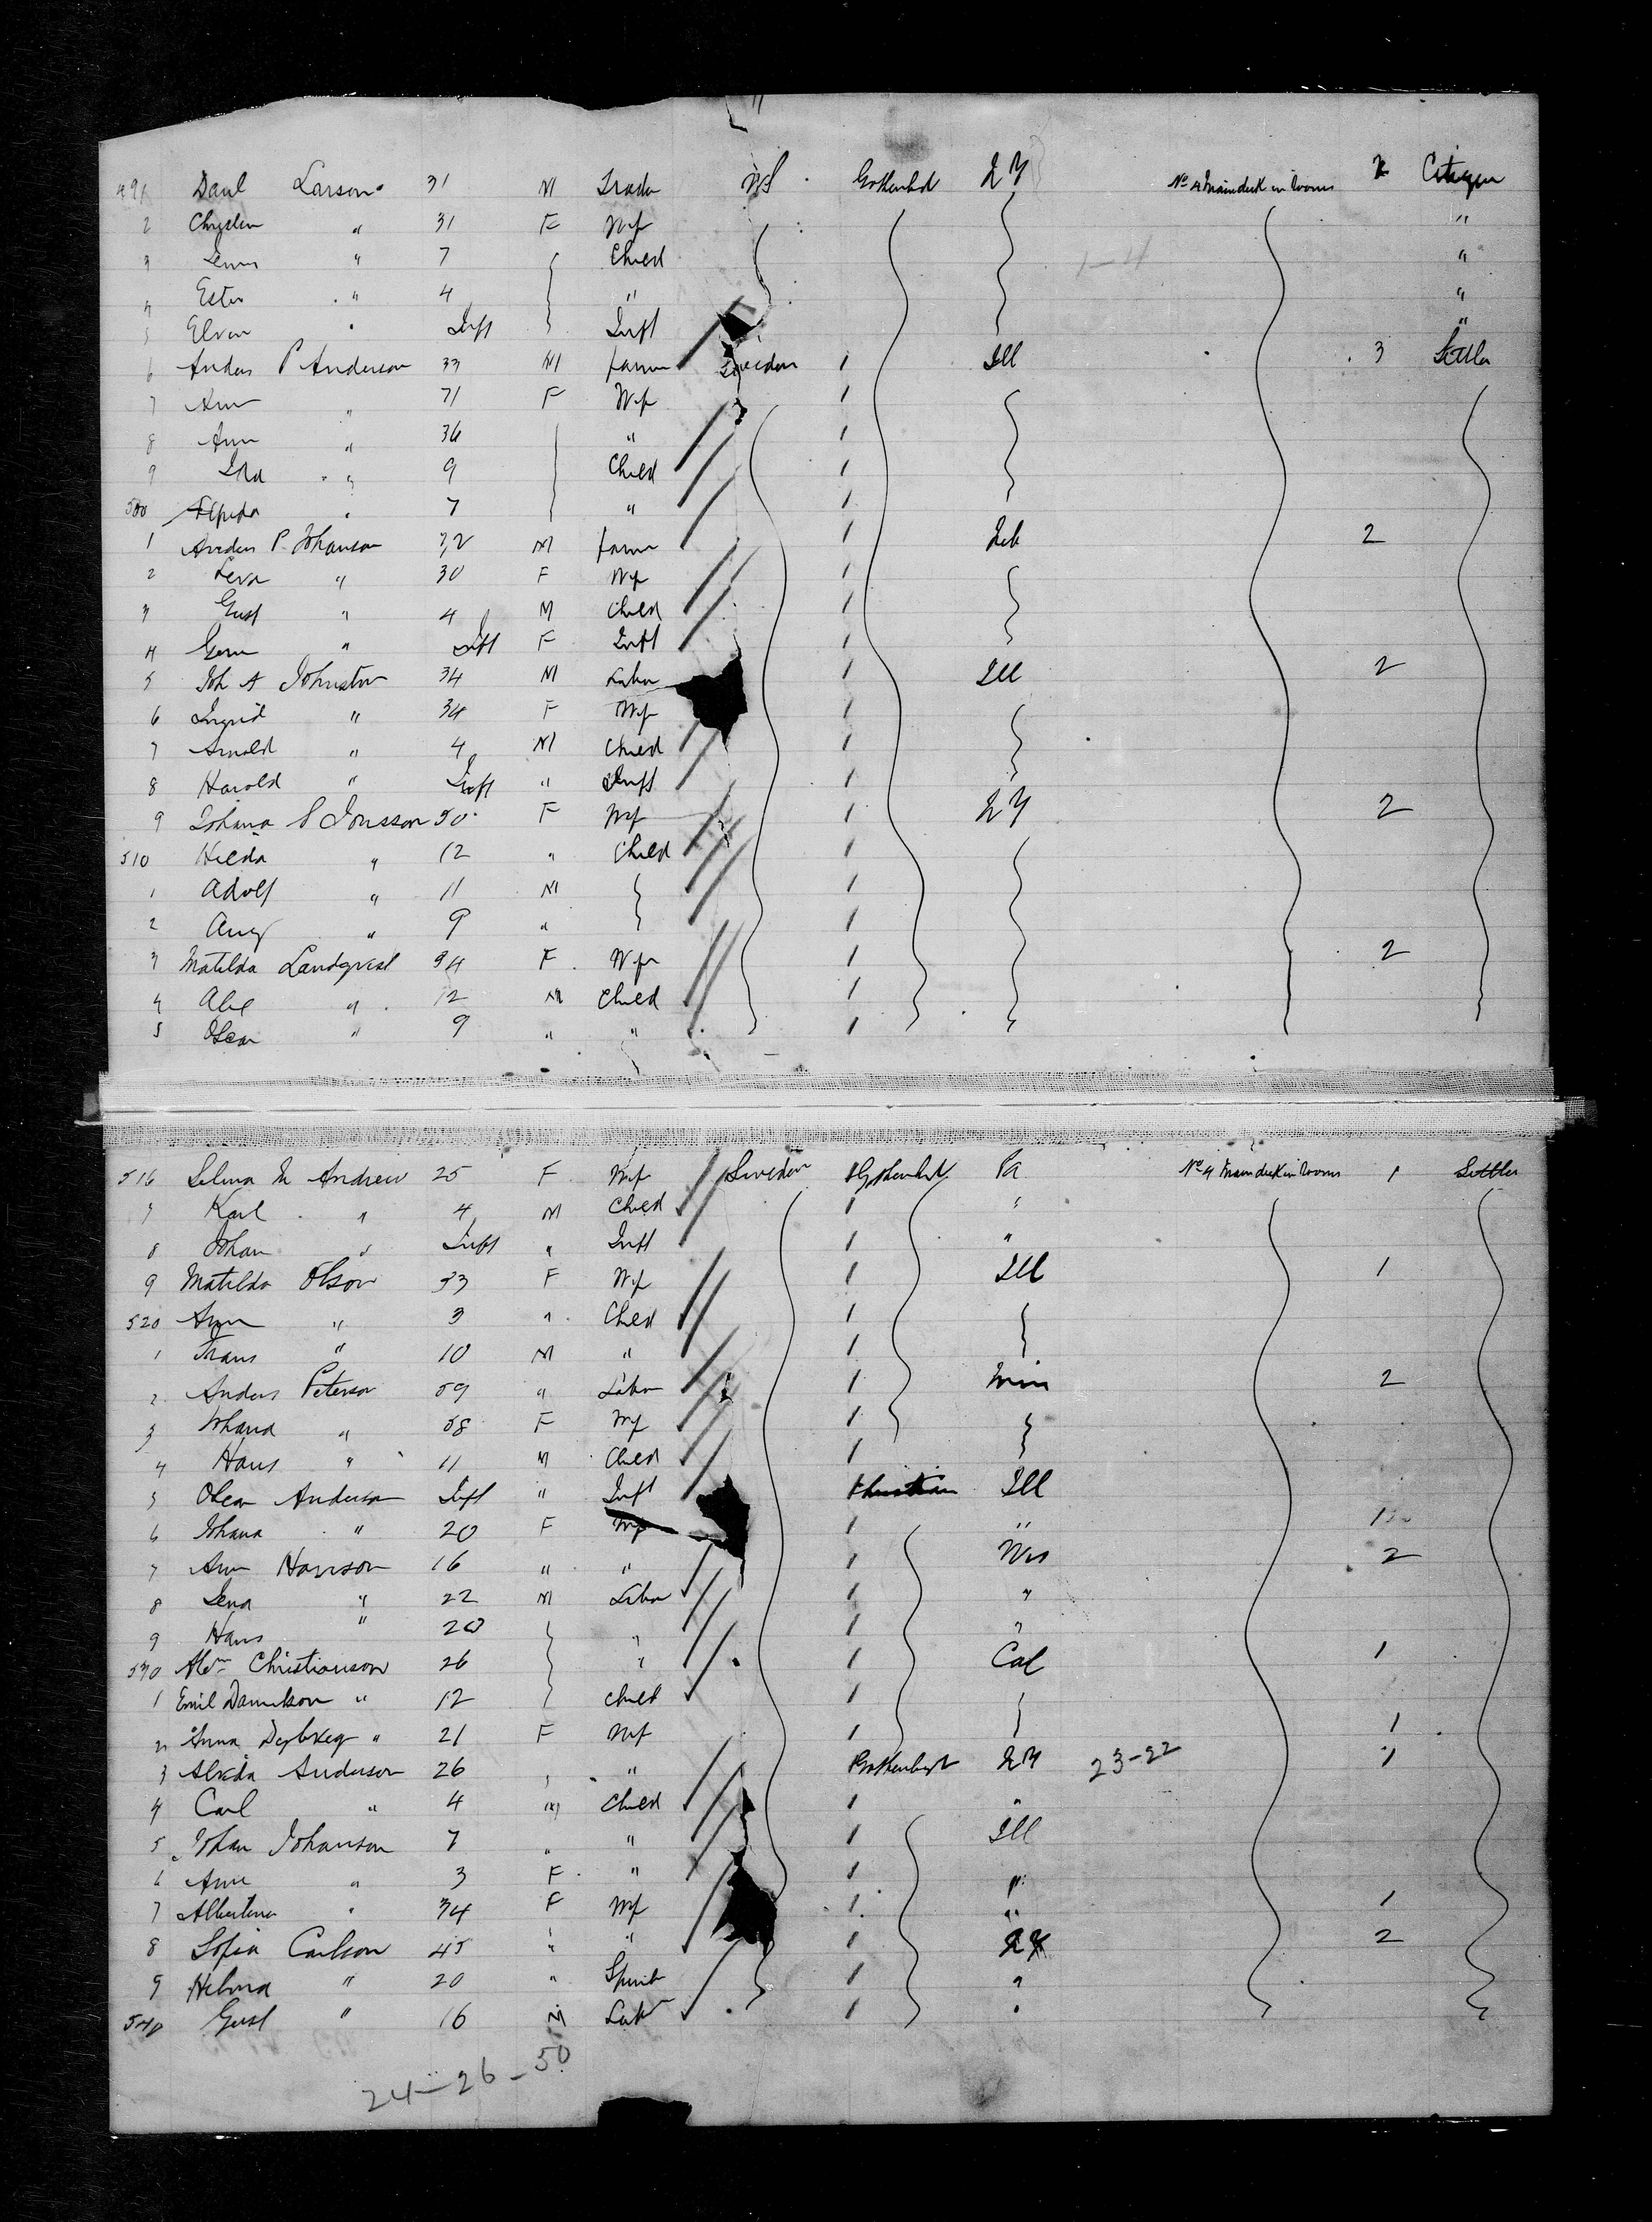 491 Larson 31 M US Gothenbd N Y No 4 Main deck in rooms Citizen
2 " 31 F Wife "
3 " 7 Child "
4 Ester " 4 " "
5 " Inft Inft "
6 Anders P Anderson 33 M farm Sweden / Ill 3 Settler
7 Ann " 71 F Wife /
8 Ann " 36 " /
9 Ida " 9 Child /
500 " 7 " /
1 Anders P. Johanson 32 M farm / 2
2 " 30 F Wife /
3 Gust " 4 M Child /
4 " Inft F Inft /
5 Joh A Johnston 34 M Labor / Ill 2
6 Ingrid " 34 F Wife /
7 Arnold " 4 M Child /
8 Harold " Inft " Inft /
9 Johana Jonsson 50 F Wife / N Y 2
510 Hilda " 12 " Child /
1 Adolf " 11 M /
2 Aug " 9 " /
3 Matilda Landqvist 34 F Wife / 2
4 " 12 M Child /
5 Oscar " 9 " " /
516 Selma M Andrew 25 F Wife Sweden Gothenbd Pa No 4 Main deck in rooms 1 Settler
7 Karl " 4 M Child / "
8 Johan " Inft " Inft / "
9 Matilda Olson 33 F Wife / Ill 1
520 Ann " 3 " Child /
1 Frans " 10 M " /
2 Anders Peterson 59 " Labor / Minn 2
3 Johana " 58 F Wife /
4 Hans " 11 M Child /
5 Oscar Anderson Inft " Inft Ill
6 Johana " 20 F Wife / " 1
7 Ann Harrison 16 " " / Wis 2
8 Lena " 22 M Labor / "
9 Hans " 20 " / "
530 Christianson 26 " / Cal 1
1 Emil Danielson " 12 Child /
2 Anna " 21 F Wife / 1
3 Alvida Anderson 26 " " Gothenbgh N Y 23-22 1
4 Carl " 4 M Child / "
5 Johan Johanson 7 " " / Ill
6 Ann " 3 F " / "
7 Albertina " 34 F Wife / " 1
8 Sofia Carlson 45 " " / 2
9 " 20 " Spinst / "
540 Gust " 16 M Labr / "
24-26-50